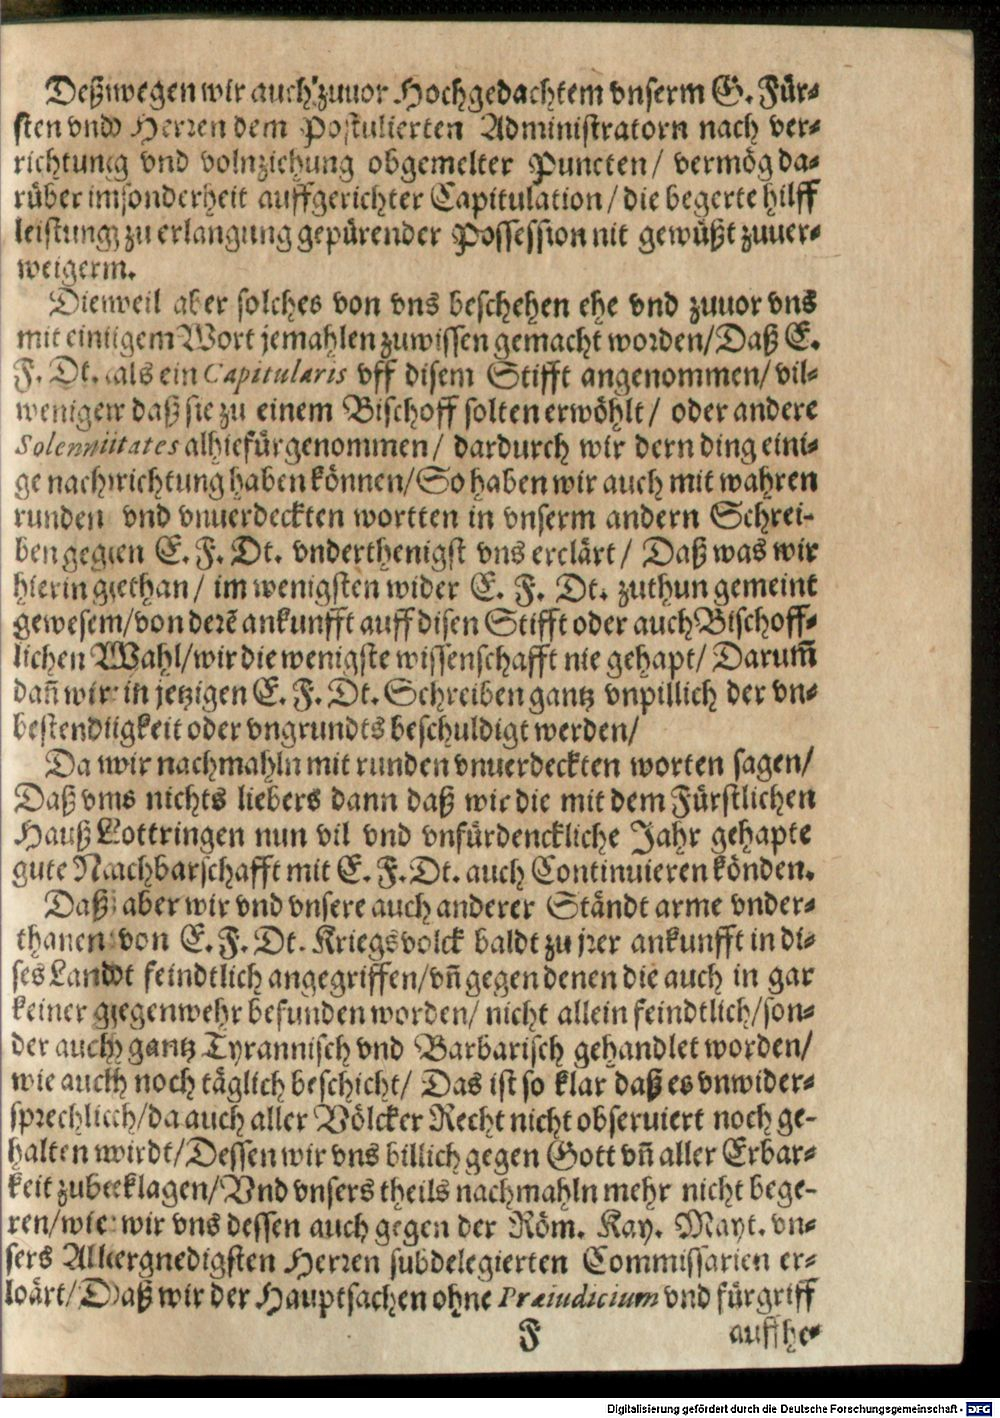 Deßwegen wir auch zuuor Hochgedachtem vnserm G. Für-
sten vnd Herren dem Postulierten Administratorn nach ver-
richtung vnd volnziehung obgemelter Puncten/ vermög da-
rüber insonderheit auffgerichter Capitulation/ die begerte hilff
leistung zu erlangung gepürender Possession nit gewüßt zuuer-
weigern.
Dieweil aber solches von vns beschehen ehe vnd zuuor vns
mit einigem Wort jemahlen zuwissen gemacht worden/ Daß E.
F. Dt. als ein Capitularis vff disem Stifft angenommen/ vil-
weniger daß sie zu einem Bischoff solten erwöhlt/ oder andere
Solennitates alhie fürgenommen/ dardurch wir dern ding eini-
ge nachrichtung haben können/ So haben wir auch mit wahren
runden vnd vnuerdeckten wortten in vnserm andern Schrei-
ben gegen E. F. Dt. vnderthenigst vns erclärt/ Daß was wir
hierin gethan/ im wenigsten wider E. F. Dt. zuthun gemeint
gewesem/ von derẽ ankunfft auff disen Stifft oder auch Bischoff-
lichen Wahl/ wir die wenigste wissenschafft nie gehapt/ Darum̃
dan̄ wir in jetzigen E. F. Dt. Schreiben gantz vnpillich der vn-
bestendigkeit oder vngrundts beschuldigt werden/
Da wir nachmahln mit runden vnuerdeckten worten sagen/
Daß vns nichts liebers dann daß wir die mit dem Fürstlichen
Hauß Lottringen nun vil vnd vnfürdenckliche Jahr gehapte
gute Nachbarschafft mit E. F. Dt. auch Continuieren könden.
Daß aber wir vnd vnsere auch anderer Ständt arme vnder-
thanen von E. F. Dt. Kriegsvolck baldt zu jrer ankunfft in di-
ses Landt feindtlich angegriffen/ vn̄ gegen denen die auch in gar
keiner gegenwehr befunden worden/ nicht allein feindtlich/ son-
der auch gantz Tyrannisch vnd Barbarisch gehandlet worden/
wie auch noch täglich beschicht/ Das ist so klar daß es vnwider-
sprechlich/ da auch aller Völcker Recht nicht obseruiert noch ge-
halten wirdt/ Dessen wir vns billich gegen Gott vn̄ aller Erbar-
keit zubeklagen/ Vnd vnsers theils nachmahln mehr nicht bege-
ren/ wie wir vns dessen auch gegen der Röm. Kay. Mayt. vn-
sers Allergnedigsten Herren subdelegierten Commissarien er-
loärt/ Daß wir der Hauptsachen ohne Præiudicium vnd fürgriff
F auffhe-
Digitalisierung gefördert durch die Deutsche Forschungsgemeinschaft - DFG